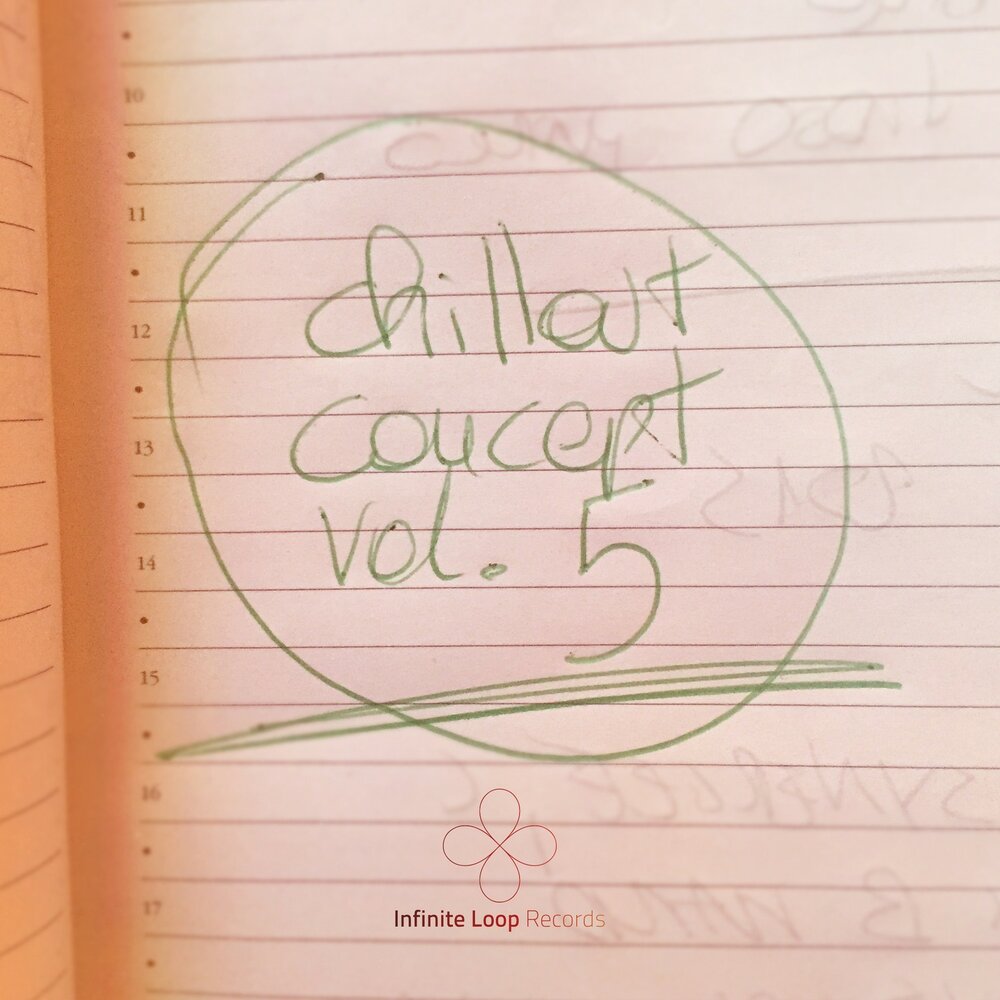 10
11
chillout
12
concept
13
vol. 5
14
15
16
17
Infinite Loop Records